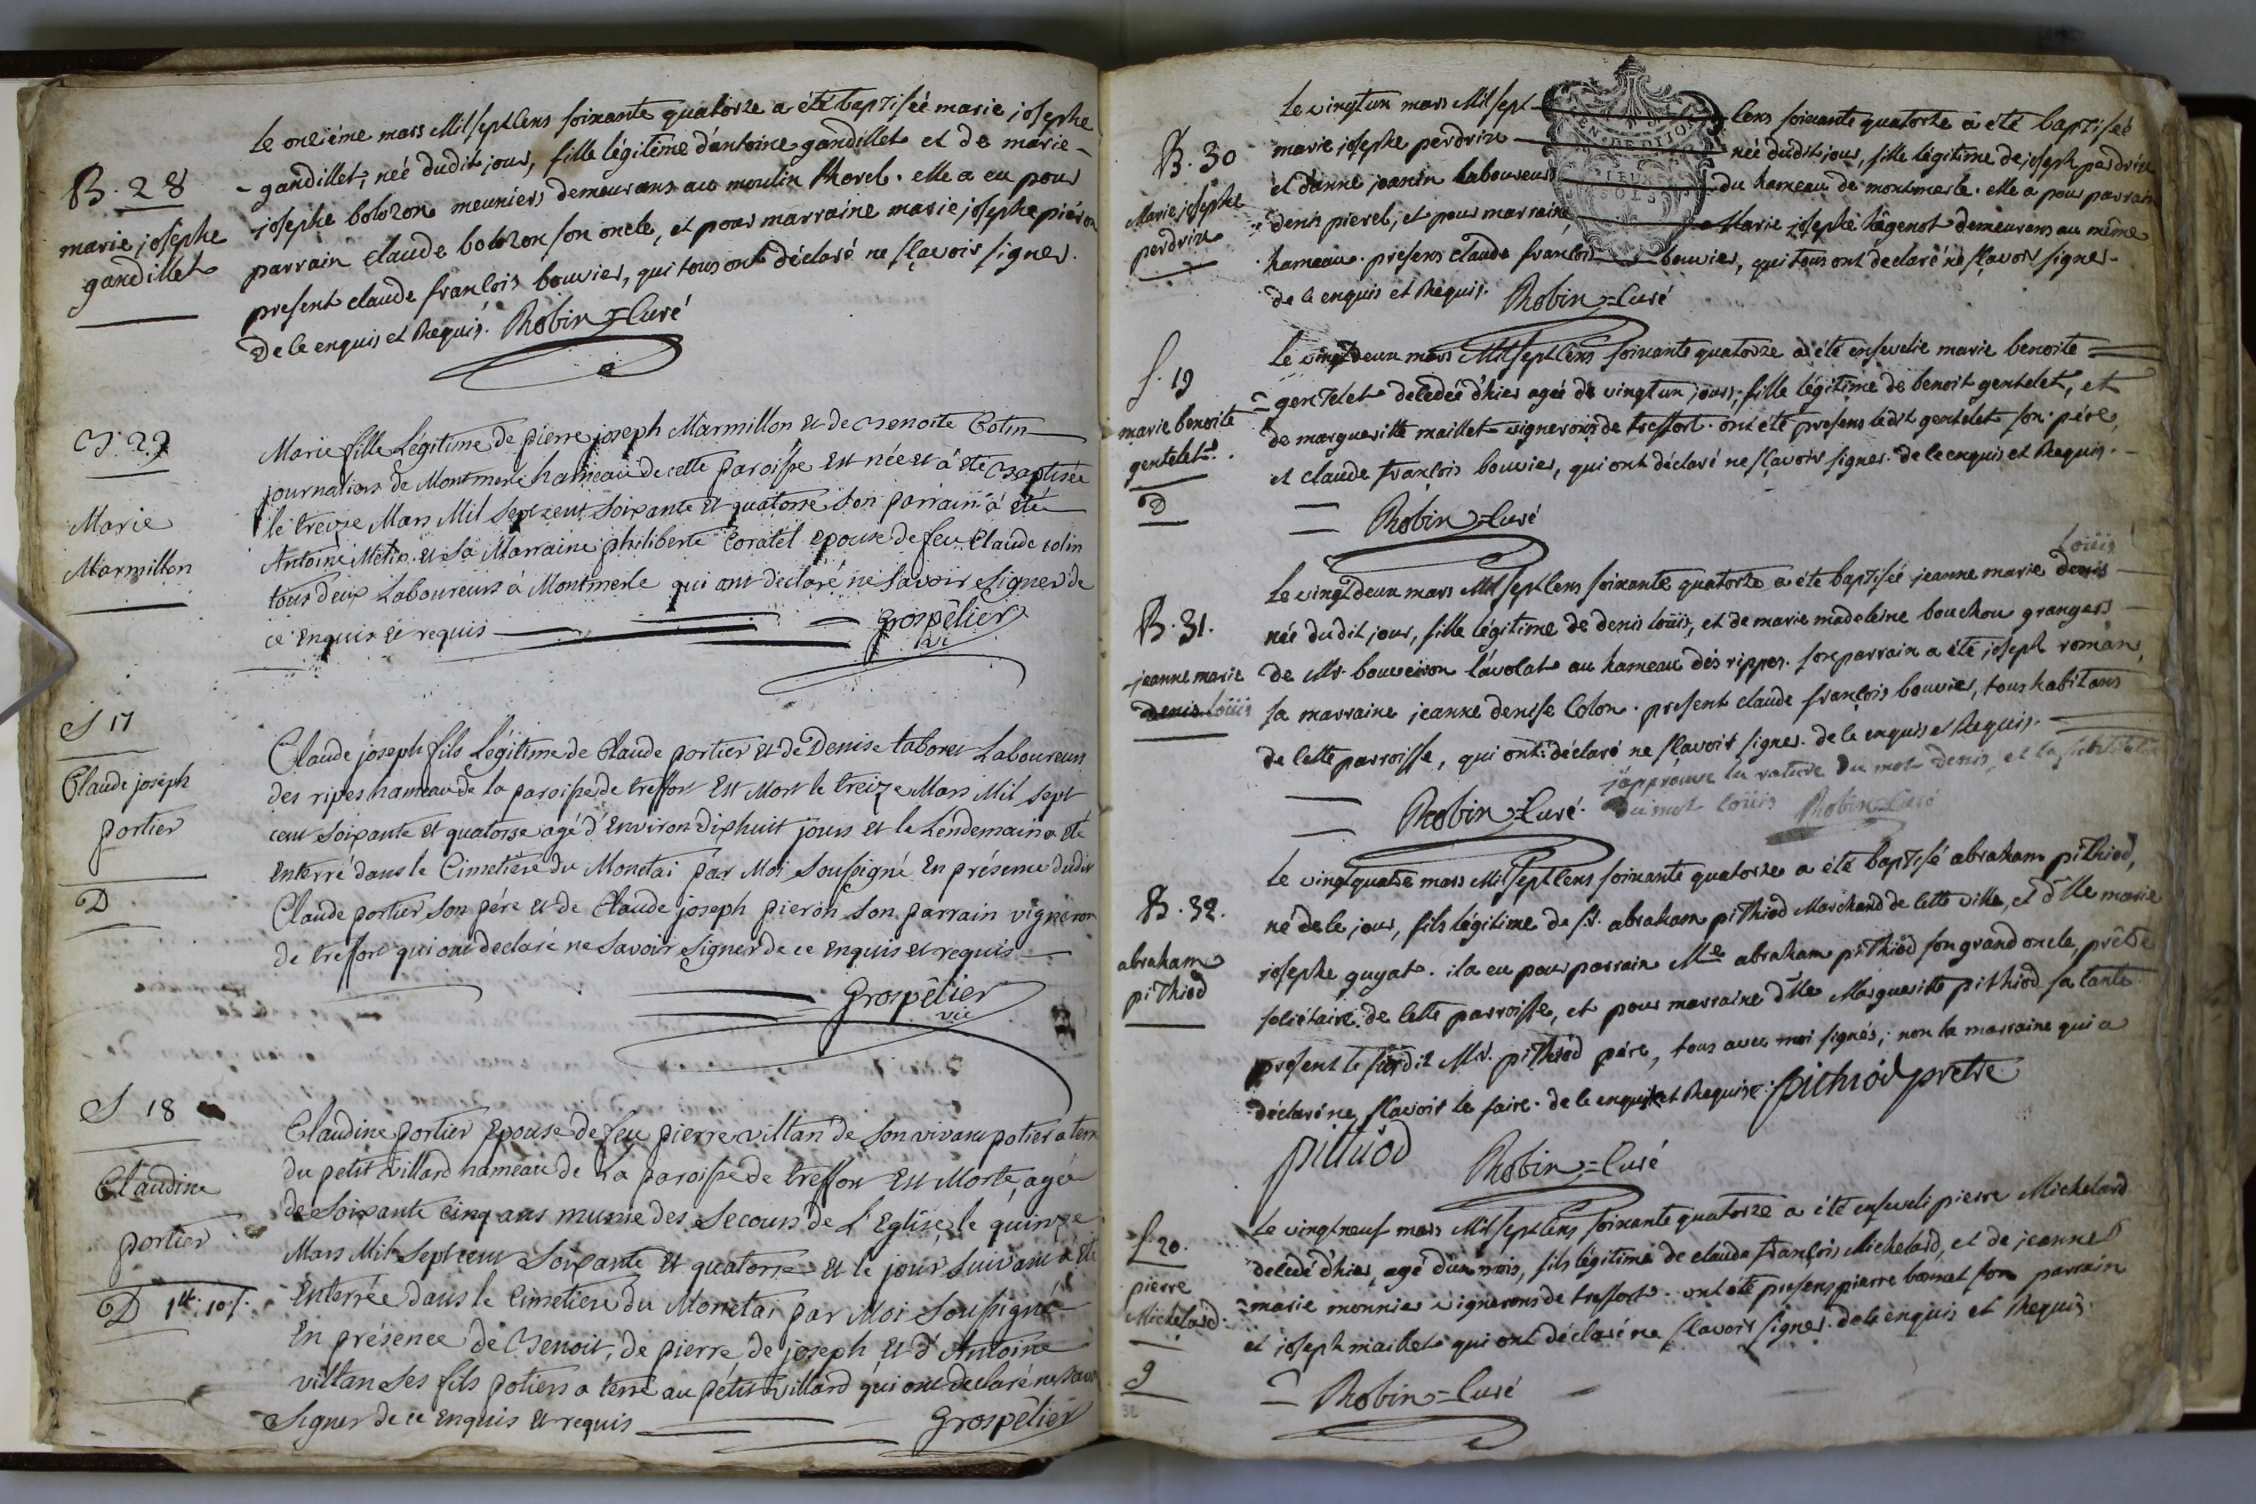 B. 28
marie josephe
gandillet
Le onzième mars Mil sept cens soixante quatorze a été baptisée marie josephe
gandillet, née dudit jour, fille légitime d'antoine gandillet et de marie
josephe bolozon meuniers demeurans au moulin Rhorel. elle a eu pour
parrain claude bolozon son oncle, et pour marraine marie josephe pieron
present claude françois bouvier, qui tous ont déclaré ne sçavoir signer.
de ce enquis et Requis. Robin = Curé
B. 29
Marie
Marmillon
Marie fille Légitime de pierre joseph Marmillon et de Benoite Cotin
journaliers de Montmerle hameau de cette paroisse est née et a été Baptisée
le treize Mars Mil Sept cent Soixante et quatorse Son parrain a été
Antoine Metin et Sa Marraine philiberte Coratel epouse de feu Claude colin
tous deux Laboureurs à Montmerle qui ont declaré ne Savoir Signer de
ce Enquis et requis
Grospêlier
vic
S 17
Claude joseph
portier
D
Claude joseph fils Légitime de Claude portier et de Denise taboret Laboureurs
des ripes hameau de la paroisse de treffort Est Mort le treize Mars Mil Sept
cent Soixante et quatorse agé d'Environ dixhuit jours et le Lendemain a été
Enterré dans le Cimetière du Monetai par Moi Soussigné En présence dudit
Claude portier Son père et de Claude joseph pieron Son parrain vigneron
de treffort qui ont declaré ne Savoir Signer de ce Enquis et requis
Grospêlier
vic
S 18
Claudine
portier
D 1tt. 10s.
Claudine portier Epouse de feu pierre villan de Son vivant potier a terre
du petit villard hameau de La paroisse de treffort Est Morte, agée
de Soixante cinq ans munie des Secours de L'Eglise, le quinze
Mars Mil Sept cent Soixante et quatorse et le jour Suivant a été
Enterrée dans le Cimetiere du Monetai par Moi Soussigné
En présence de Benoit, de pierre de joseph et d'Antoine
villan Ses fils potiers a terre au pétit villard qui ont declaré ne Savoir
Signer de ce Enquis et requis
Grospêlier
B. 30
Marie josephe
perdrix
Le vingt un mars Mil sept cens soixante quatorze a été baptisée
marie josephe perdrix née dudit jour, fille légitime de joseph perdrix
et d'anne joanin laboureurs du hameau de montmerle. elle a pour parrain
denis prevel, et pour marraine Marie josephe hugenot demeurans au même
hameau. presens claude françois bouvier, qui tous ont déclaré ne sçavoir signer
de ce enquis et Requis. Robin = Curé
S. 19
marie benoite
gentelet
D
Le vingt deux mars Mil sept cens soixante quatorze a été ensevelie marie benoite
gentelet décédée d'hier agée de vingt un jours, fille légitime de benoit gentelet, et
de marguerite maillet vignerons de treffort. ont été presens ledit gentelet son pére,
et claude françois bouvier, qui ont déclaré ne sçavoir signer. de ce enquis et Requis.
Robin = Curé
B. 31.
jeanne marie
denis loüis
loüis
Le vingt deux mars Mil sept cens soixante quatorze a été baptisée jeanne marie denis
née dudit jour, fille légitime de denis loüis, et de marie madeleine bouchou grangers
de Mr. bouveiron l'avolat au hameau des rippes. son parrain a été joseph roman,
sa marraine jeanne denise Colon. present claude françois bouvier, tous habitans
de cette parroisse, qui ont déclaré ne sçavoir signer. de ce enquis et Requis.
j'approuve la rature du mot denis, et la substitution
du mot loüis Robin = Curé
Robin = Curé.
B. 32.
abraham
pithiod
Le vingt quatre mars Mil sept cens soixante quatorze a été baptisé abraham pithiod,
né de ce jour, fils légitime de sr. abraham pithiod Marchand de cette ville, et dlle marie
josephe guyat. il a eu pour parrain Me abraham pithiod son grand oncle, prêtre
sociétaire de cette parroisse, et pour marraine dlle Marguerite pithiod sa tante.
present le susdit Mr. pithiod pére, tous avec moi signés; non la marraine qui a
déclaré ne sçavoir le faire. de ce enquis et Requise. pithiod pretre
pithiod Robin = Curé
S. 20.
pierre
Michelard.
g
Le vingt neuf mars Mil sept cens soixante quatorze a été enseveli pierre Michelard
décédé d'hier, agé d'un mois, fils légitime de claude françois Michelard, et de jeanne
marie monnier vignerons de treffort. ont été presens pierre bonnet son parrain
et joseph maillet qui ont déclaré ne sçavoir signer. de ce enquis et Requis.
Robin = Curé